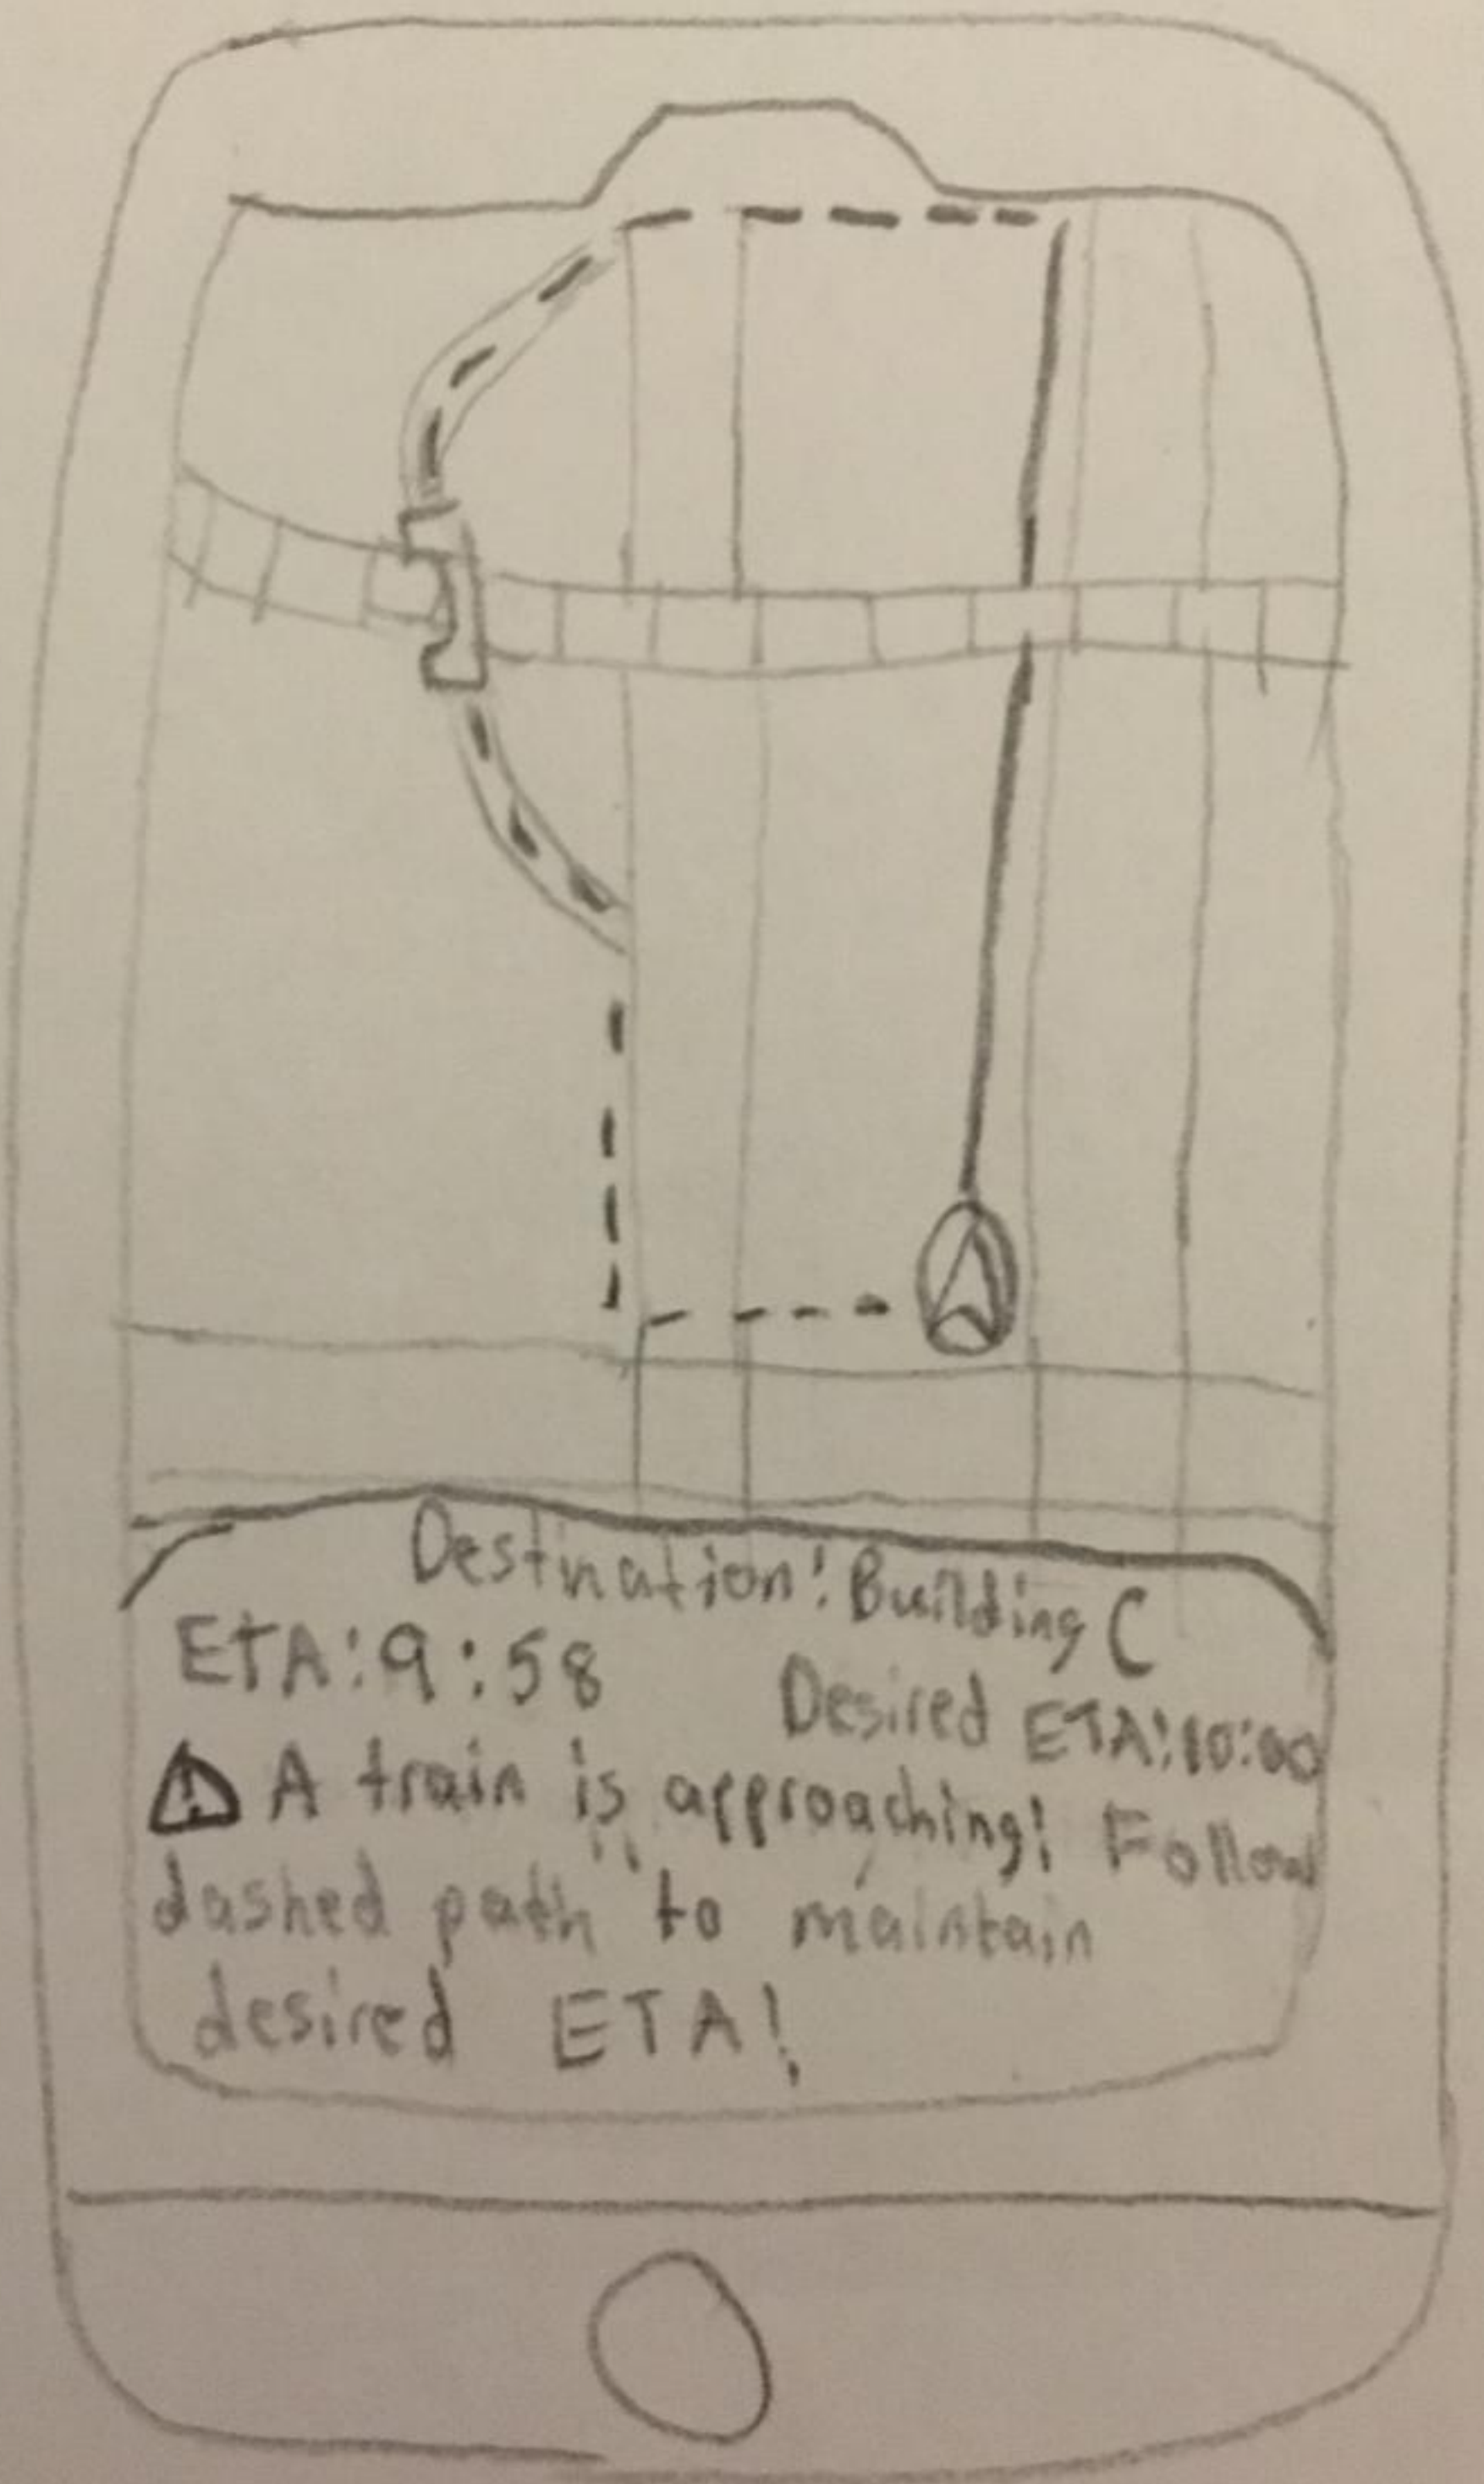 Destination: Building C
ETA: 9:58
Desired ETA: 10:00
⚠ A train is approaching! Follow
dashed path to maintain
desired ETA!